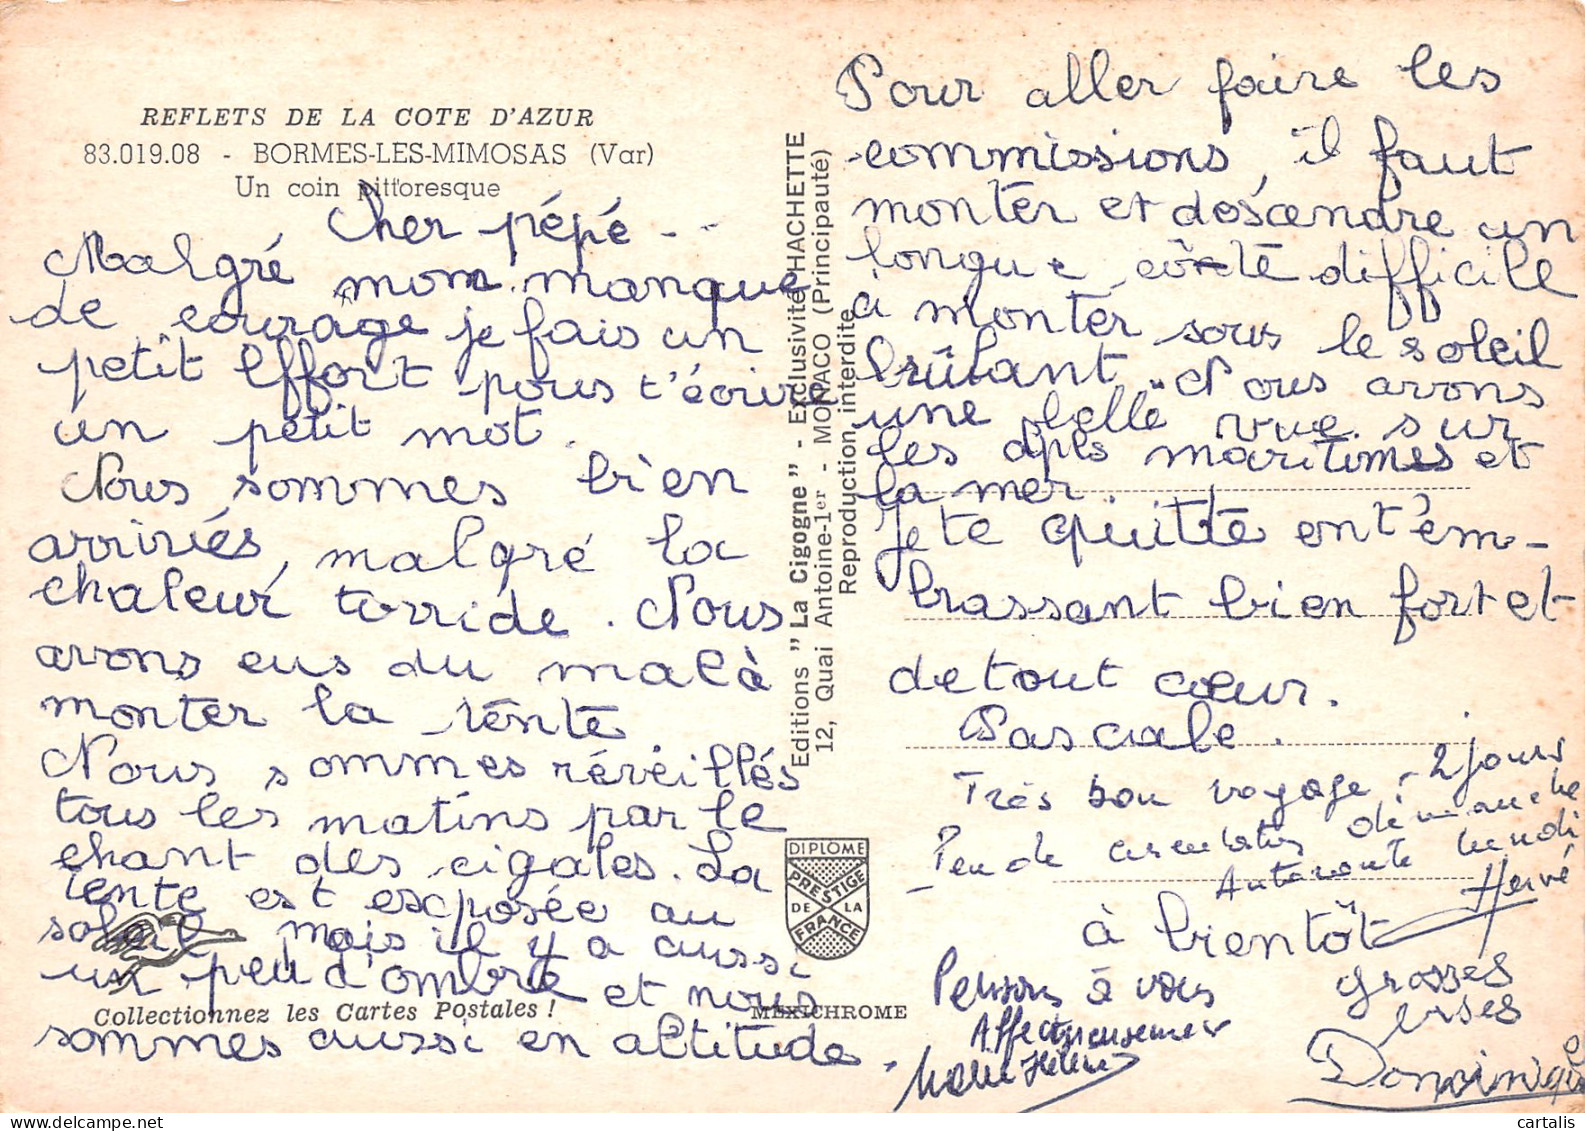 REFLETS DE LA COTE D'AZUR
83.019.08 - BORMES-LES-MIMOSAS (Var)
Un coin pittoresque
Cher pépé - -
Malgré mon manque
de courage je fais un
petit effort pour t'écrire
un petit mot.
Nous sommes bien
arrivés, malgré la
chaleur torride. Nous
avons eus du mal à
monter la tente
Nous sommes réveillés
tous les matins par le
chant des cigales. La
tente est exposée au
soleil mais il y a aussi
un peu d'ombre et nous
sommes aussi en altitude.
Collectionnez les Cartes Postales !
Editions " La Cigogne " - Exclusivité HACHETTE
12, Quai Antoine-1er - MONACO (Principauté)
Reproduction interdite
DIPLOME
PRESTIGE
DE LA
FRANCE
MEXICHROME
Pour aller faire les
commissions, il faut
monter et descendre un
longue côte difficile
à monter sous le soleil
brûlant. Nous avons
une "belle" vue sur
les alpes maritimes et
la mer.
Je te quitte en t'em-
brassant bien fort et
de tout cœur.
Pascale.
Très bon voyage - 2 jours
Peu de circulation dimanche
Autoroute lundi
Hervé
à bientôt
Grosses
bises
Dominique
Pensons à vous
Affectueusement
Marie Hélène
cartalis